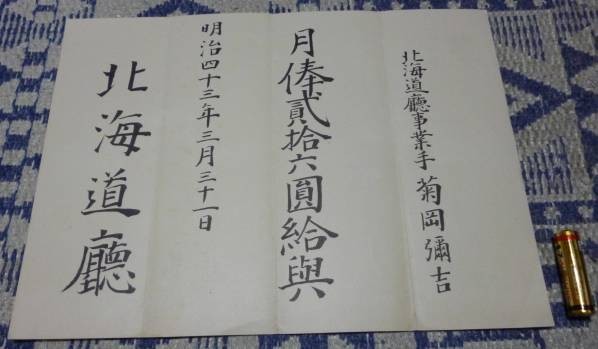 北海道廳事業手 菊岡彌吉
月俸貳拾六圓給與
明治四十三年三月三十一日
北海道廳